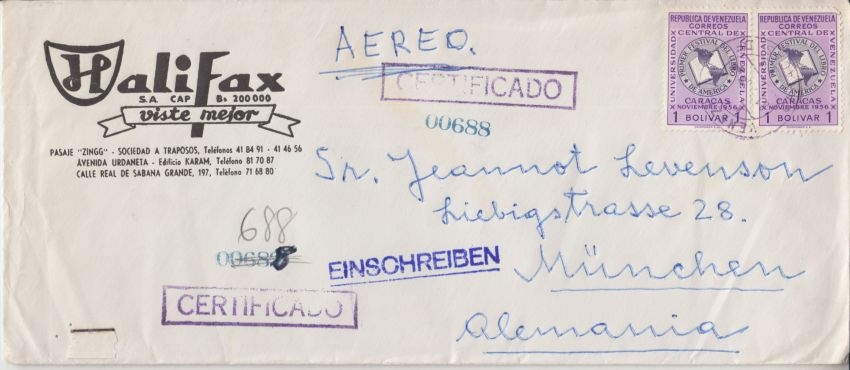 Halifax
S.A. CAP Bs 200 000
viste mejor
PASAJE "ZINGG" - SOCIEDAD A TRAPOSOS, Teléfonos 41 84 91 - 41 46 56
AVENIDA URDANETA - Edificio KARAM, Teléfono 81 70 87
CALLE REAL DE SABANA GRANDE, 197, Teléfono 71 68 80
AEREO.
CERTIFICADO
00688
REPUBLICA DE VENEZUELA
CORREOS
UNIVERSIDAD CENTRAL DE VENEZUELA
PRIMER FESTIVAL DEL LIBRO
DE AMERICA
CARACAS
NOVIEMBRE 1956
1 BOLIVAR 1
REPUBLICA DE VENEZUELA
CORREOS
UNIVERSIDAD CENTRAL DE VENEZUELA
PRIMER FESTIVAL DEL LIBRO
DE AMERICA
CARACAS
NOVIEMBRE 1956
1 BOLIVAR 1
Sr. Jeannot Levenson
Liebigstrasse 28.
München
Alemania
688
00688
EINSCHREIBEN
CERTIFICADO